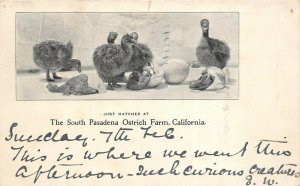 JUST HATCHED AT
The South Pasadena Ostrich Farm, California.
Sunday. 7th Feb
This is where we went this
afternoon - Such curious creatures
E. W.